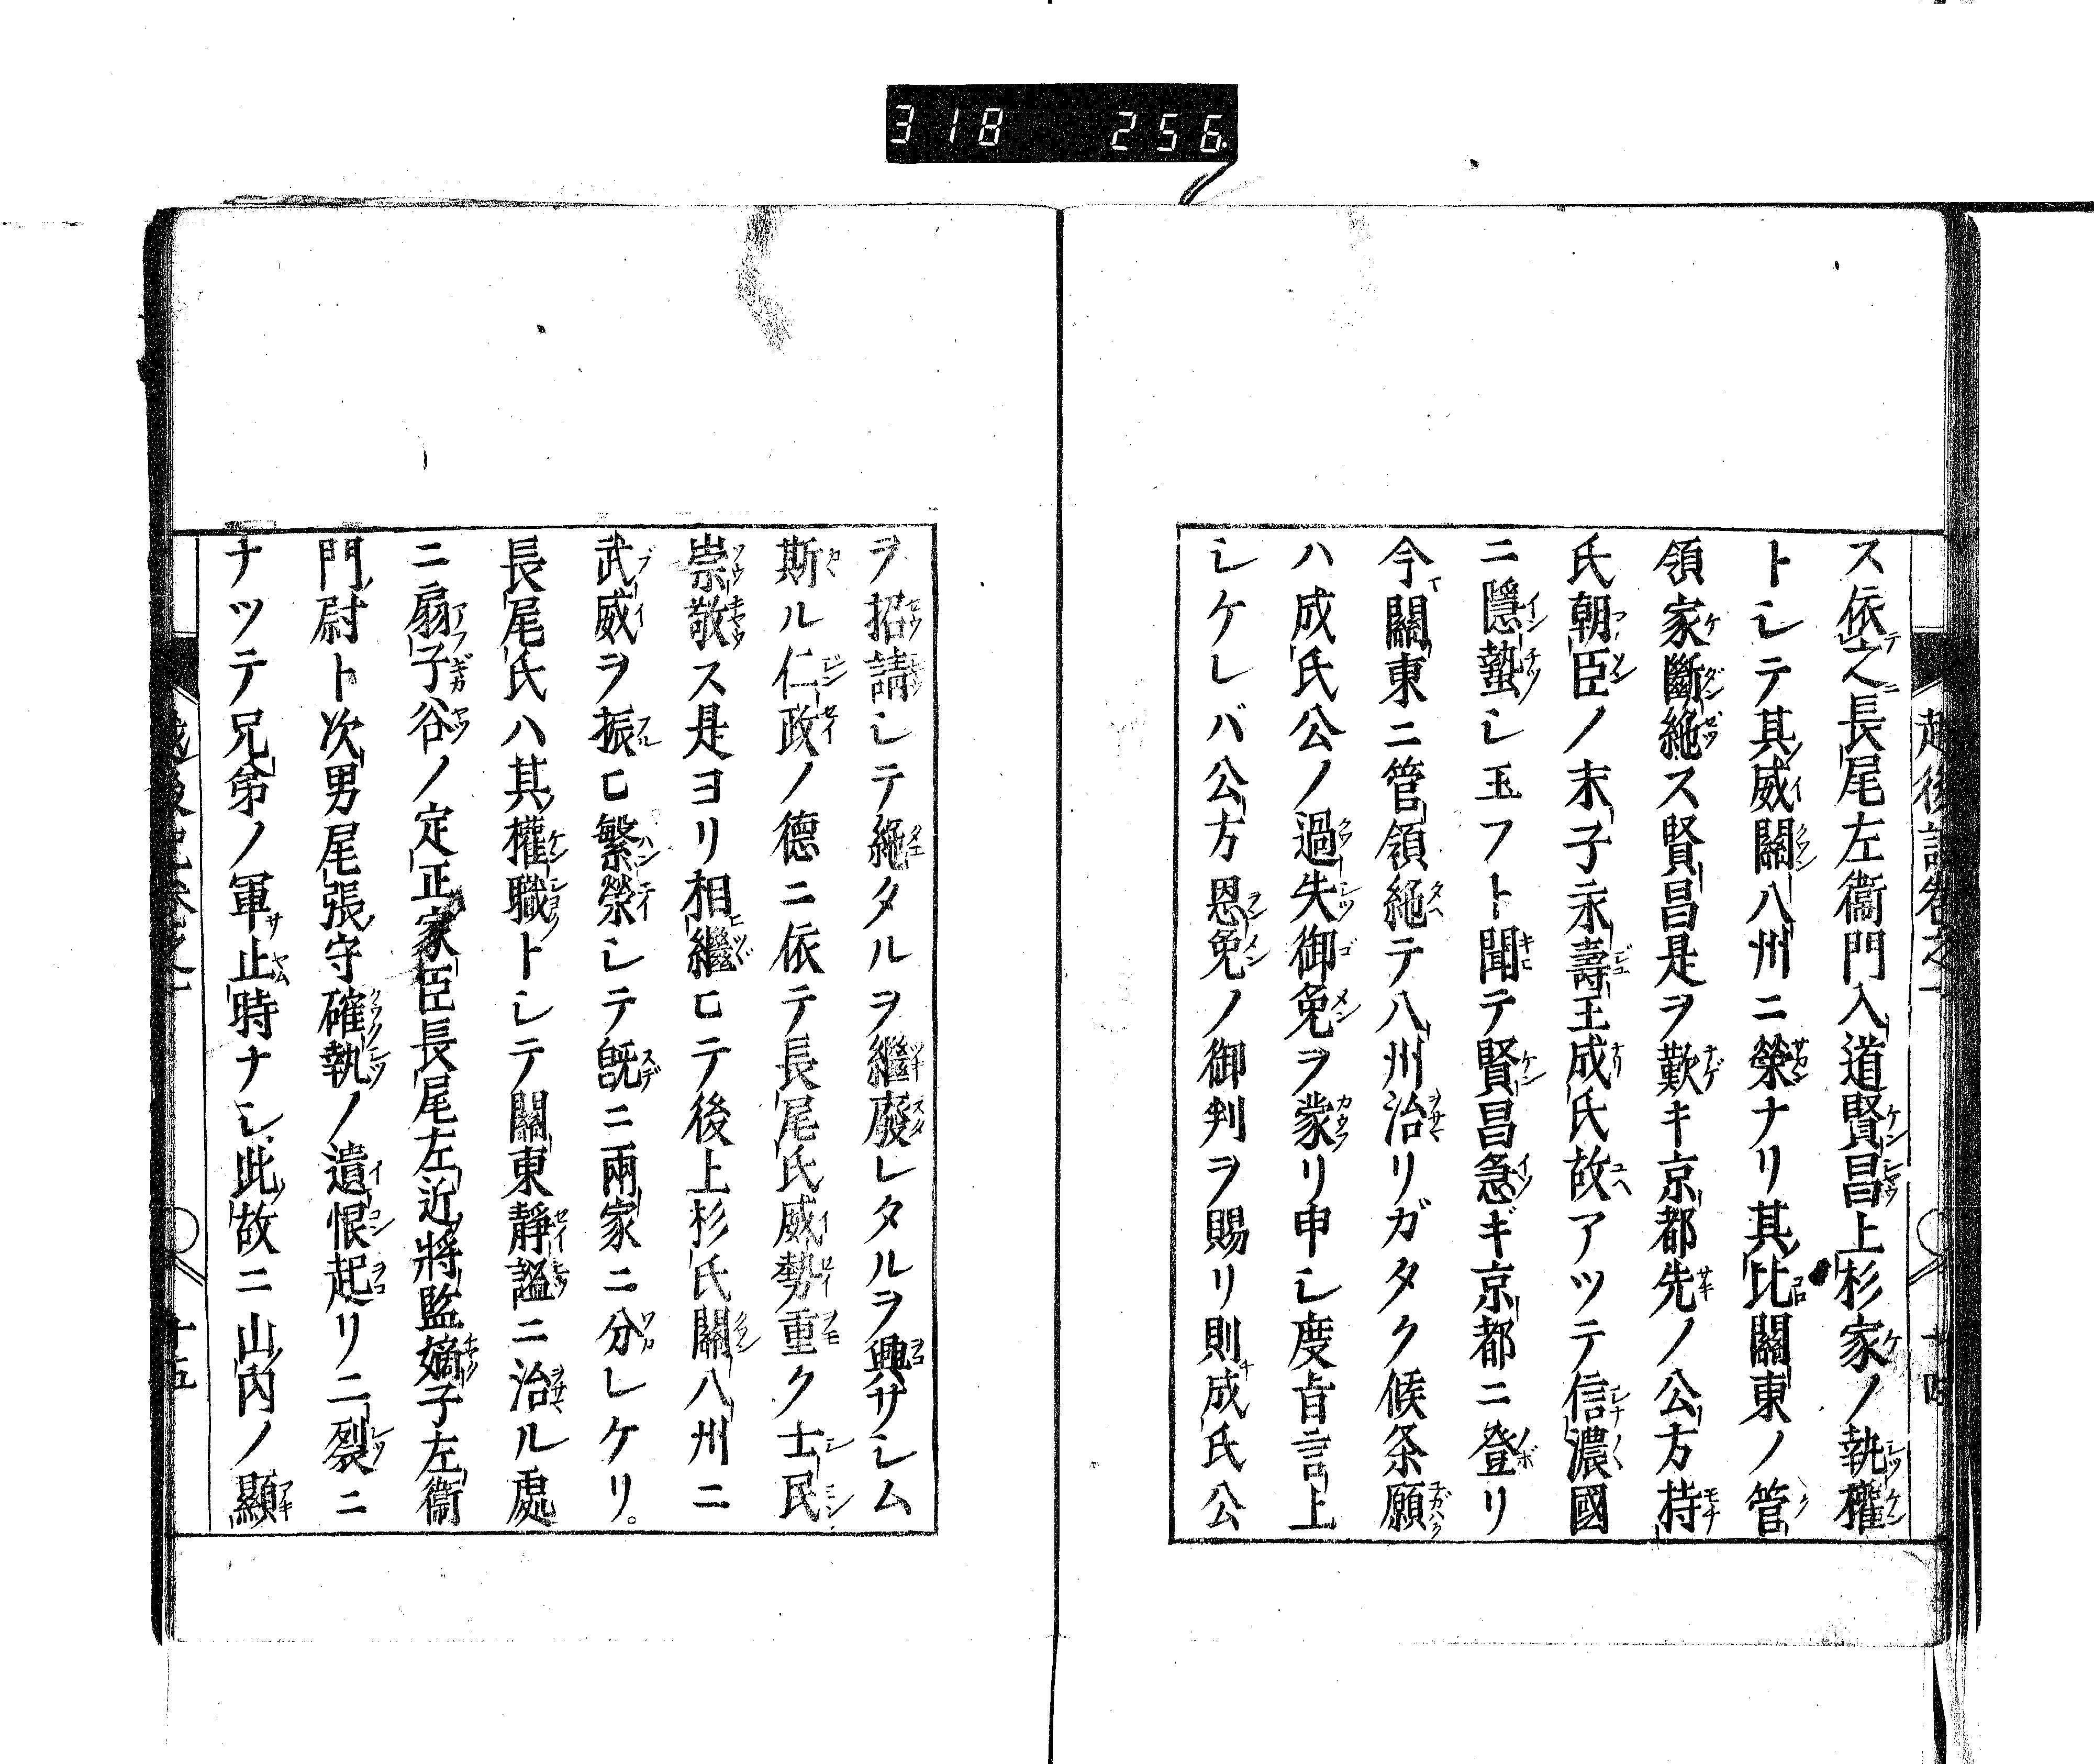 318 256
ス依之長尾左衞門入道賢昌上杉家ノ執權
トシテ其威關八州ニ榮ナリ其比關東ノ管
領家斷絶ス賢昌是ヲ歎キ京都先ノ公方持
氏朝臣ノ末子永壽王成氏故アツテ信濃國
ニ隱蟄シ玉フト聞テ賢昌急ギ京都ニ登リ
今關東ニ管領絶テ八州治リガタク候条願
ハ成氏公ノ過失御免ヲ蒙リ申シ度旨言上
シケレバ公方恩免ノ御判ヲ賜リ則成氏公
ヲ招請シテ絶タルヲ繼廢レタルヲ興サシム
斯ル仁政ノ德ニ依テ長尾氏威勢重ク士民
崇敬ス是ヨリ相繼ヒテ後上杉氏關八州ニ
武威ヲ振ヒ繁榮シテ既ニ兩家ニ分レケリ。
長尾氏ハ其權職トシテ關東靜謐ニ治ル處
ニ扇子谷ノ定正家臣長尾左近將監嫡子左衞
門尉ト次男尾張守確執ノ遺恨起リ二裂ニ
ナツテ兄弟ノ軍止時ナシ此故ニ山内ノ顯